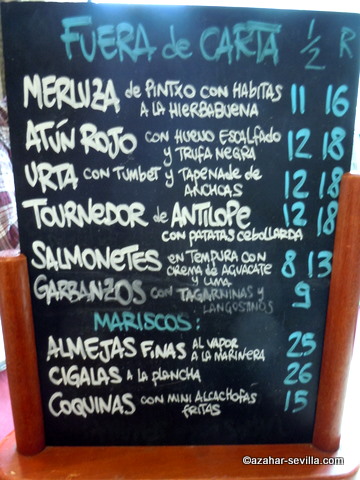 FUERA de CARTA 1/2 R
MERLUZA de PINTXO CON HABITAS 11 16
A LA HIERBABUENA
ATÚN ROJO CON HUEVO ESCALFADO 12 18
Y TRUFA NEGRA
URTA CON TUMBET Y TAPENADE DE 12 18
ANCHOAS
TOURNEDOR de ANTILOPE 12 18
CON PATATAS CEBOLLARDA
SALMONETES EN TEMPURA CON 8 13
CREMA DE AGUACATE
Y LIMA
GARBANZOS CON TAGARNINAS Y 9
LANGOSTINOS
MARISCOS:
ALMEJAS FINAS AL VAPOR 25
A LA MARINERA
CIGALAS A LA PLANCHA 26
COQUINAS CON MINI ALCACHOFAS 15
FRITAS
©azahar-sevilla.com